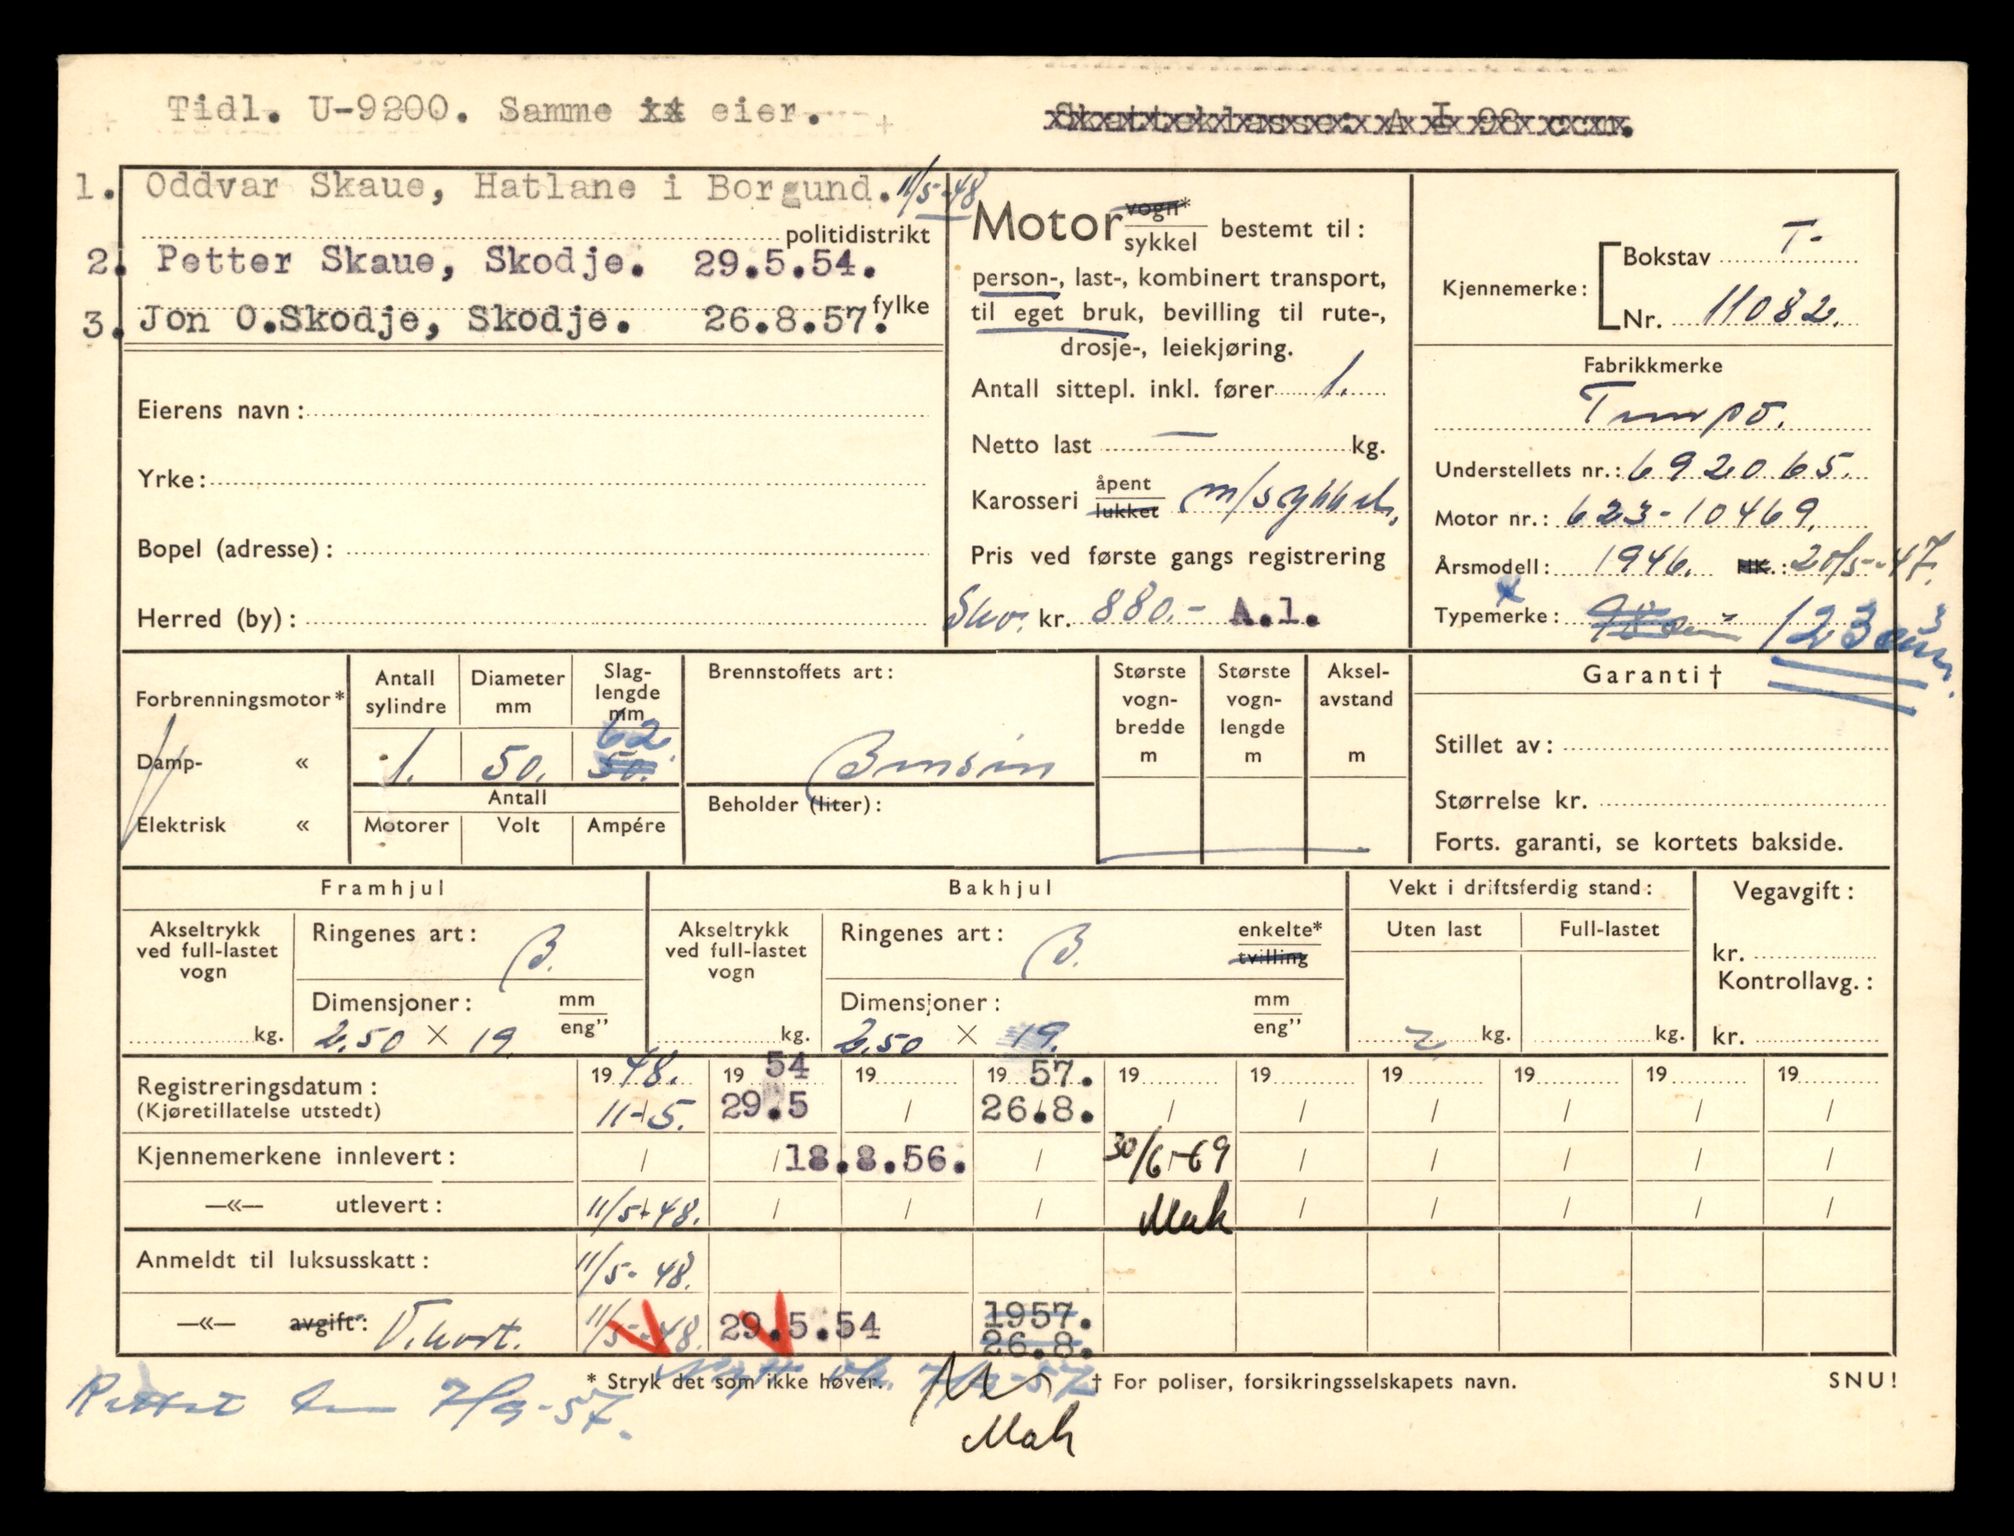 Tidl. U-9200. Samme eier.
Skatteklasse: A I 98 ccm.
1. Oddvar Skaue, Hatlane i Borgund. 11/5-48
politidistrikt
2. Petter Skaue, Skodje. 29.5.54.
fylke
3. Jon O.Skodje, Skodje. 26.8.57.
Eierens navn:
Yrke:
Bopel (adresse):
Herred (by):
Motor vogn* sykkel bestemt til:
person-, last-, kombinert transport,
til eget bruk, bevilling til rute-,
drosje-, leiekjøring.
Antall sittepl. inkl. fører 1.
Netto last — kg.
Karosseri åpent lukket m/sykkel.
Pris ved første gangs registrering
kr. 880.- A.1.
Kjennemerke: Bokstav T-
Nr. 11082.
Fabrikkmerke
Tempo.
Understellets nr.: 692065.
Motor nr.: 623-10469.
Årsmodell: 1946. HK.: 20/5-47.
Typemerke: 98 cm³ 123 cm³
Forbrenningsmotor*
Damp- «
Elektrisk «
Antall sylindre
1.
Diameter mm
50.
Slag-lengde mm
62
50.
Antall
Motorer Volt Ampére
Brennstoffets art:
Bensin
Beholder (liter):
Største vogn-bredde m
Største vogn-lengde m
Aksel-avstand m
Garanti†
Stillet av:
Størrelse kr.
Forts. garanti, se kortets bakside.
Framhjul
Akseltrykk ved full-lastet vogn
kg.
Ringenes art: B.
Dimensjoner: mm eng”
2.50 × 19
Bakhjul
Akseltrykk ved full-lastet vogn
kg.
Ringenes art: B. enkelte* tvilling
Dimensjoner: mm eng”
2.50 × 19.
Vekt i driftsferdig stand:
Uten last Full-lastet
kg. kg.
Vegavgift:
kr.
Kontrollavg.:
kr.
Registreringsdatum: 19 48. 19 54 19 19 57. 19 19 19 19 19 19
(Kjøretillatelse utstedt) 11-5. 29.5 / 26.8. / / / / / /
Kjennemerkene innlevert: / / 18.8.56. / 30/6-69 / / / / /
—«— utlevert: 11/5-48. / / / Mak / / / / /
Anmeldt til luksusskatt: 11/5-48.
—«— avgift*: V.kort. 11/5-48. 29.5.54 1957. 26.8.
* Stryk det som ikke høver. 7/9-57 † For poliser, forsikringsselskapets navn. SNU!
Rettet 7/9-57.
Mak